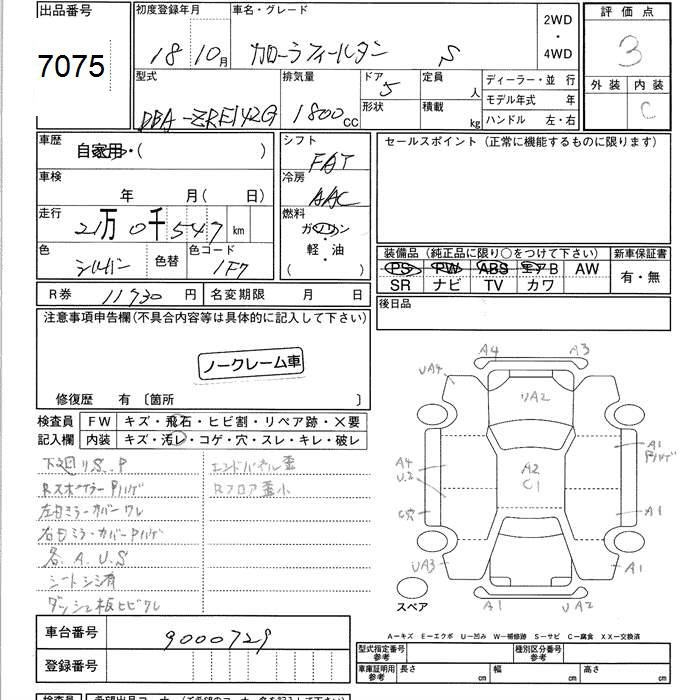 出品番号 初度登録年月 車名・グレード 2WD・4WD 評価点
7075 18 10月 カローラフィールダー S 3
型式 排気量 ドア 5 定員 人 ディーラー・並 行 外装 内装
形状 積載 kg モデル年式 年 C
DBA-ZRE142G 1800cc ハンドル 左・右
車歴 シフト セールスポイント (正常に機能するものに限ります)
自家用・( ) FAT
車検 冷房
年 月( 日) AAC
走行 燃料
21万0千547km ガソリン
色 色替 色コード 軽・油 装備品 (純正品に限り○をつけて下さい) 新車保証書
シルバー 1F7 ( ) PS PW ABS エアB AW 有・無
SR ナビ TV カワ
R券 11930円 名変期限 月 日 後日品
注意事項申告欄(不具合内容等は具体的に記入して下さい)
ノークレーム車
修復歴 有 〔箇所 〕
検査員 FW キズ・飛石・ヒビ割・リペア跡・×要
記入欄 内装 キズ・汚レ・コゲ・穴・スレ・キレ・破レ
下廻リS.P エンドパネル歪
Rスポイラーアリハゲ Rフロア歪小
左ドミラーカバーワレ
右ドミラーカバー
各.A.U.S
シートシミ有
ダッシュ板ヒビワレ
A4 A3
UA4 リA2
A4 A2 A1
U2 C1
C穴 A1
UA3 A1
スペア A1 UA2
A-キズ E-エクボ U-凹み W-補修跡 S-サビ C-腐食 XX-交換済
車台番号 9000729
登録番号
型式指定番号 参考 種別区分番号 参考
車庫証明用 参考 長さ cm 幅 cm 高さ cm